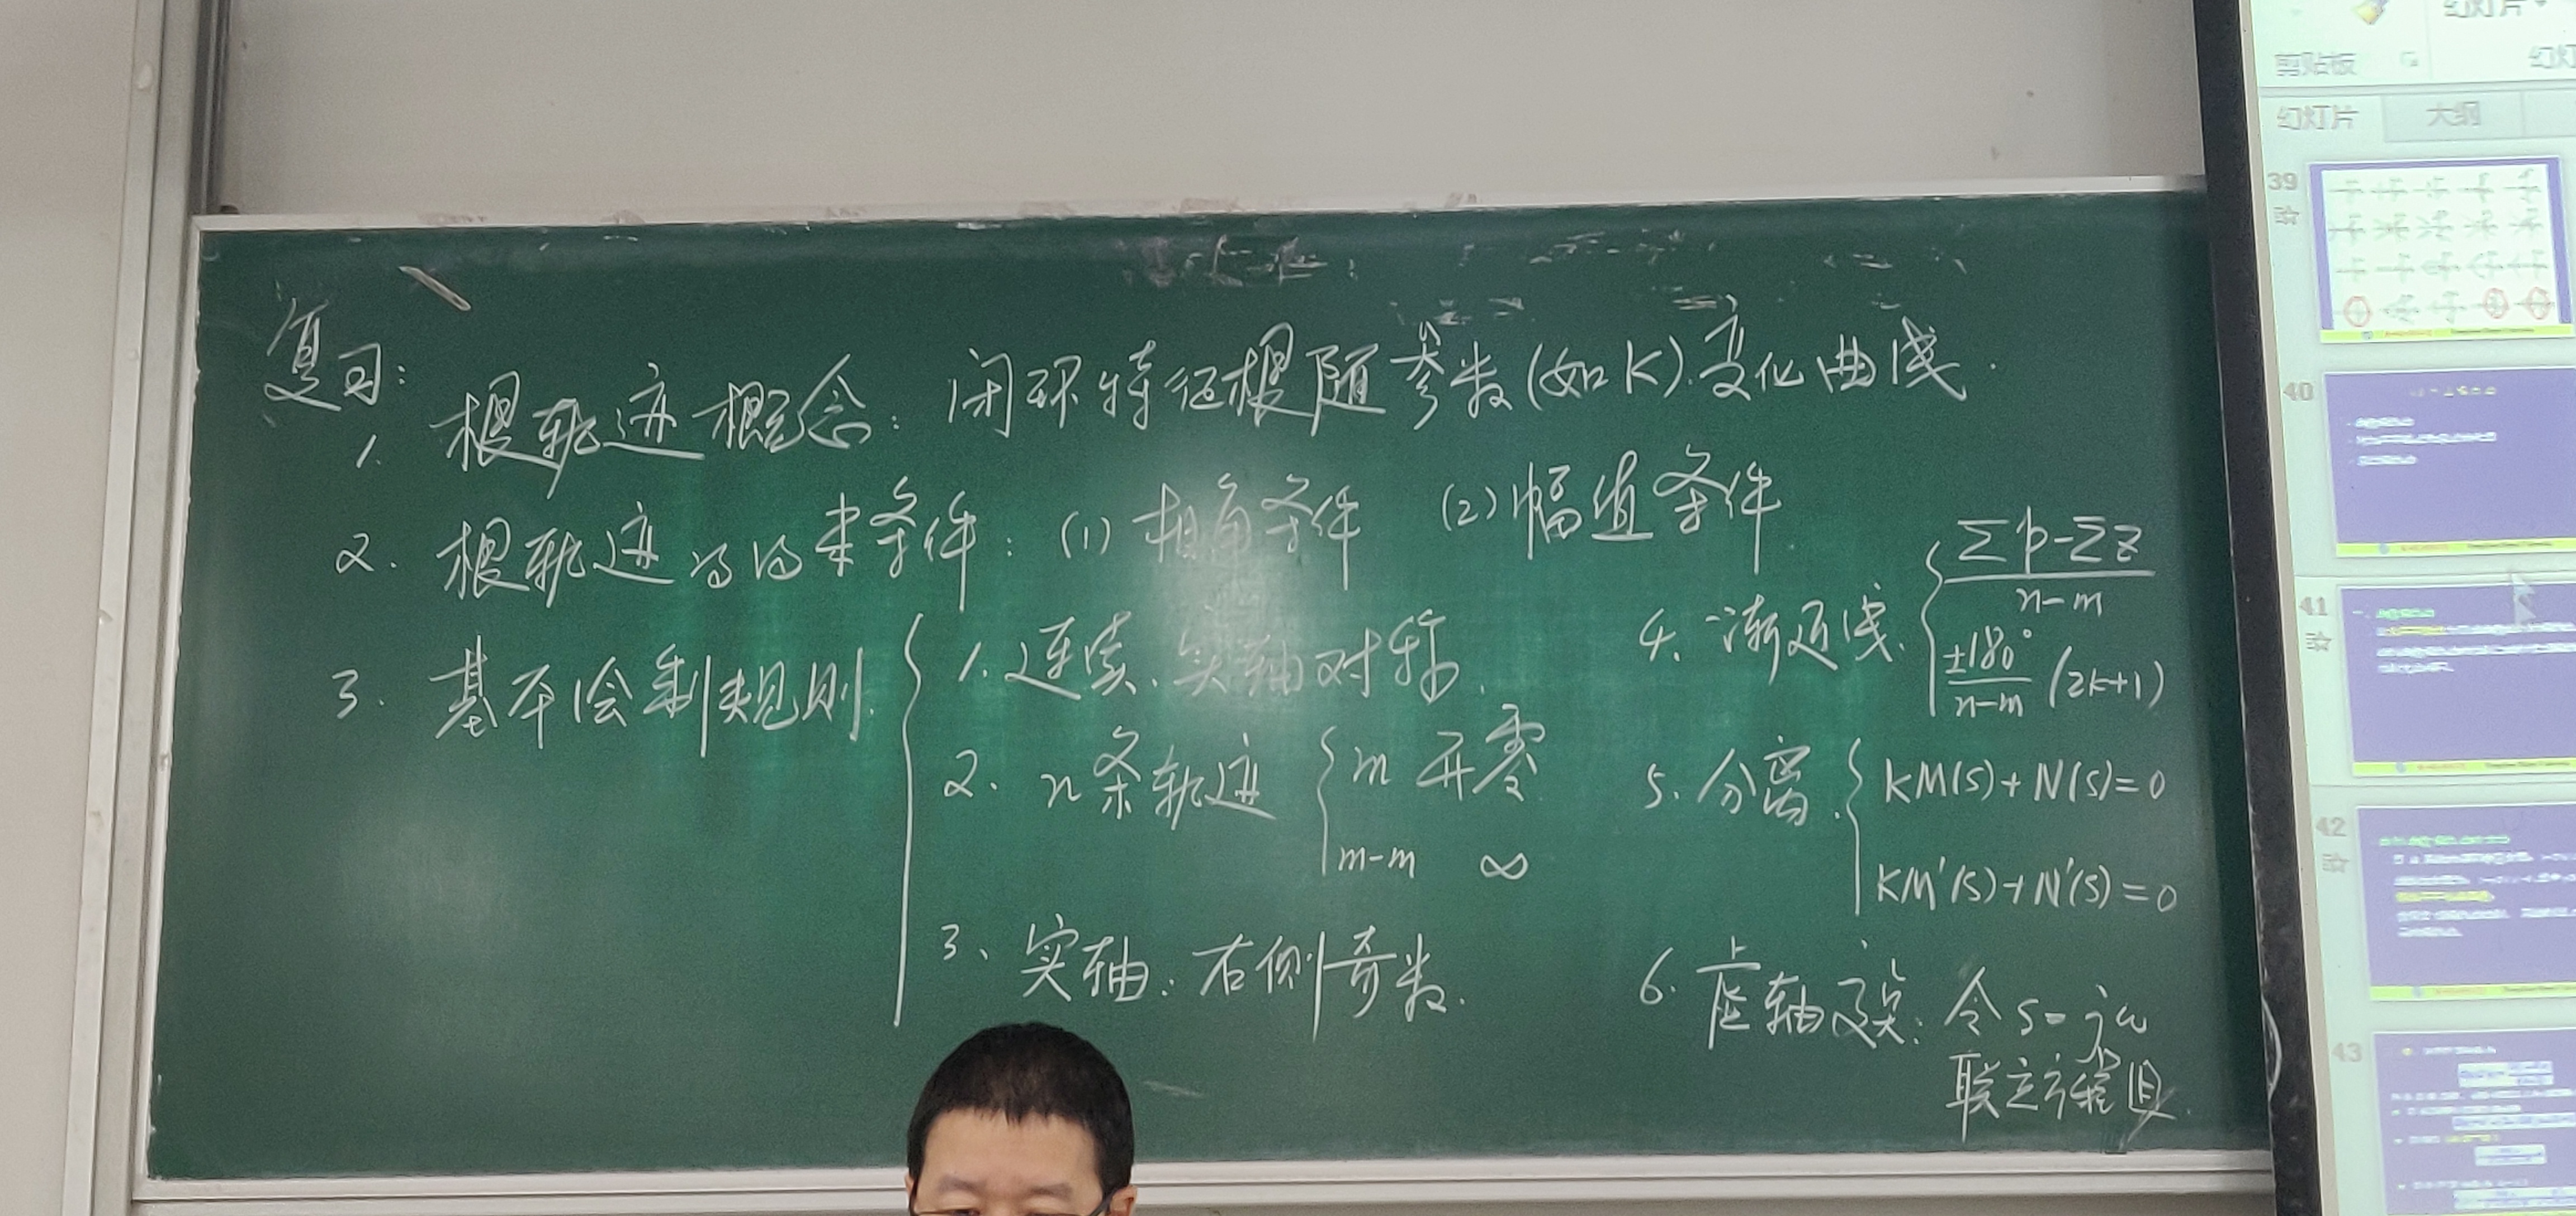 复习:
1. 根轨迹概念: 闭环特征根随参数(如K)变化曲线.
2. 根轨迹的约束条件: (1) 相角条件 (2) 幅值条件
3. 基本绘制规则
1. 连续、实轴对称.
2. n条轨迹
m 开零
m-m ∞
3、实轴: 右侧奇数.
4. 渐近线.
Σp-Σz
n-m
±180°
n-m
(2k+1)
5. 分离.
KM(s)+N(s)=0
KM'(s)+N'(s)=0
6. 虚轴交点: 令s=jω
联立方程组.
幻灯片
剪贴板
幻灯
幻灯片
大纲
39
40
41
42
43